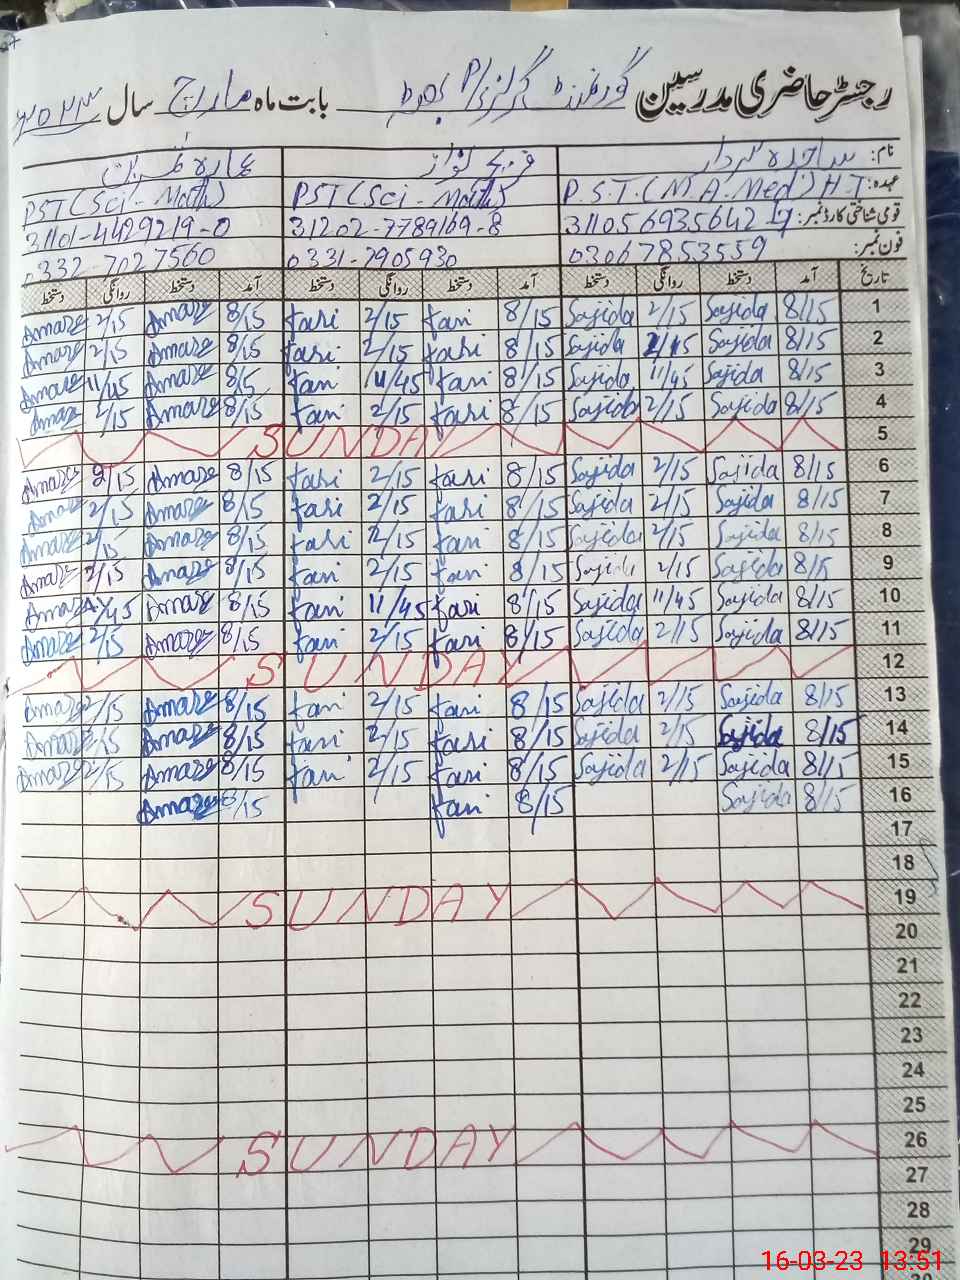 رجسٹر حاضری مدرسین گورنمنٹ گرلز P/ بابت ماہ مارچ سال ۲۰۲۳
نام: ساجدہ سردار
عہدہ: P.S.T.(M.A.Med) H.T PST(Sci-Math) PST(Sci-Math)
قومی شناختی کارڈ نمبر: 31202-7789169-8 31101-4429219-0
فون نمبر: 03067853559 0331-7905930 0332-7027560
تاریخ آمد دستخط روانگی دستخط آمد دستخط روانگی دستخط آمد دستخط روانگی دستخط
1 8/15 Sajida 2/15 Sajida 8/15 fari 2/15 fari 8/15 Amaze 2/15 Amaze
2 8/15 Sajida 2/15 Sajida 8/15 fari 2/15 fari 8/15 Amaze 2/15 Amaze
3 8/15 Sajida 11/45 Sajida 8/15 fari 11/45 fari 8/15 Amaze 11/45 Amaze
4 8/15 Sajida 2/15 Sajida 8/15 fari 2/15 fari 8/15 Amaze 2/15 Amaze
5 SUNDAY
6 8/15 Sajida 2/15 Sajida 8/15 fari 2/15 fari 8/15 Amaze 2/15 Amaze
7 8/15 Sajida 2/15 Sajida 8/15 fari 2/15 fari 8/15 Amaze 2/15 Amaze
8 8/15 Sajida 2/15 Sajida 8/15 fari 2/15 fari 8/15 Amaze 2/15 Amaze
9 8/15 Sajida 2/15 Sajida 8/15 fari 2/15 fari 8/15 Amaze 2/15 Amaze
10 8/15 Sajida 11/45 Sajida 8/15 fari 11/45 fari 8/15 Amaze Amaze
11 8/15 Sajida 2/15 Sajida 8/15 fari 2/15 fari 8/15 Amaze 2/15 Amaze
12 SUNDAY
13 8/15 Sajida 2/15 Sajida 8/15 fari 2/15 fari 8/15 Amaze 2/15 Amaze
14 8/15 Sajida 2/15 Sajida 8/15 fari 2/15 fari 8/15 Amaze 2/15 Amaze
15 8/15 Sajida 2/15 Sajida 8/15 fari 2/15 fari 8/15 Amaze 2/15 Amaze
16 8/15 Sajida 8/15 fari 8/15 Amaze
17
18
19 SUNDAY
20
21
22
23
24
25
26 SUNDAY
27
28
29
16-03-23 13:51